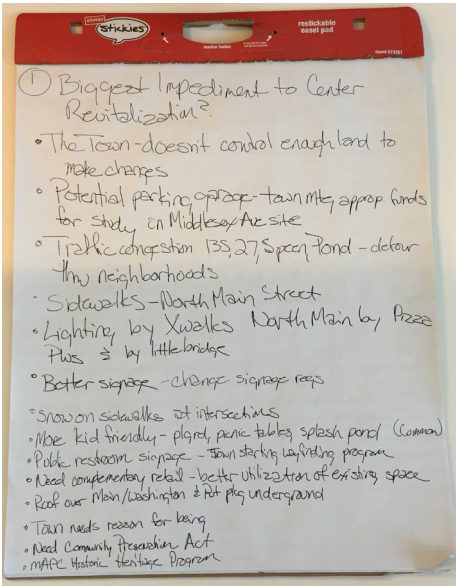 STAPLES
Stickies
marker holder
restickable
easel pad
① Biggest Impediment to Center
Revitalization?
• The Town - doesn't control enough land to
make changes
• Potential parking garage - town mtg approp funds
for study on Middlesex Ave site
• Traffic congestion 135, 27, Speen, Pond - detour
thru neighborhoods
• Sidewalks - North Main Street
• Lighting by Xwalks North Main by Pizza
Plus & by little bridge
• Better signage - change signage regs
• Snow on sidewalks at intersections
• More kid friendly - plgrd, picnic tables, splash pond (Common)
• Public restroom signage - Town starting wayfinding program
• Need complementary retail - better utilization of existing space
• Roof over Main/Washington & Put pkg underground
• Town needs reason for being
• Need Community Preservation Act
• MAPC Historic Heritage Program